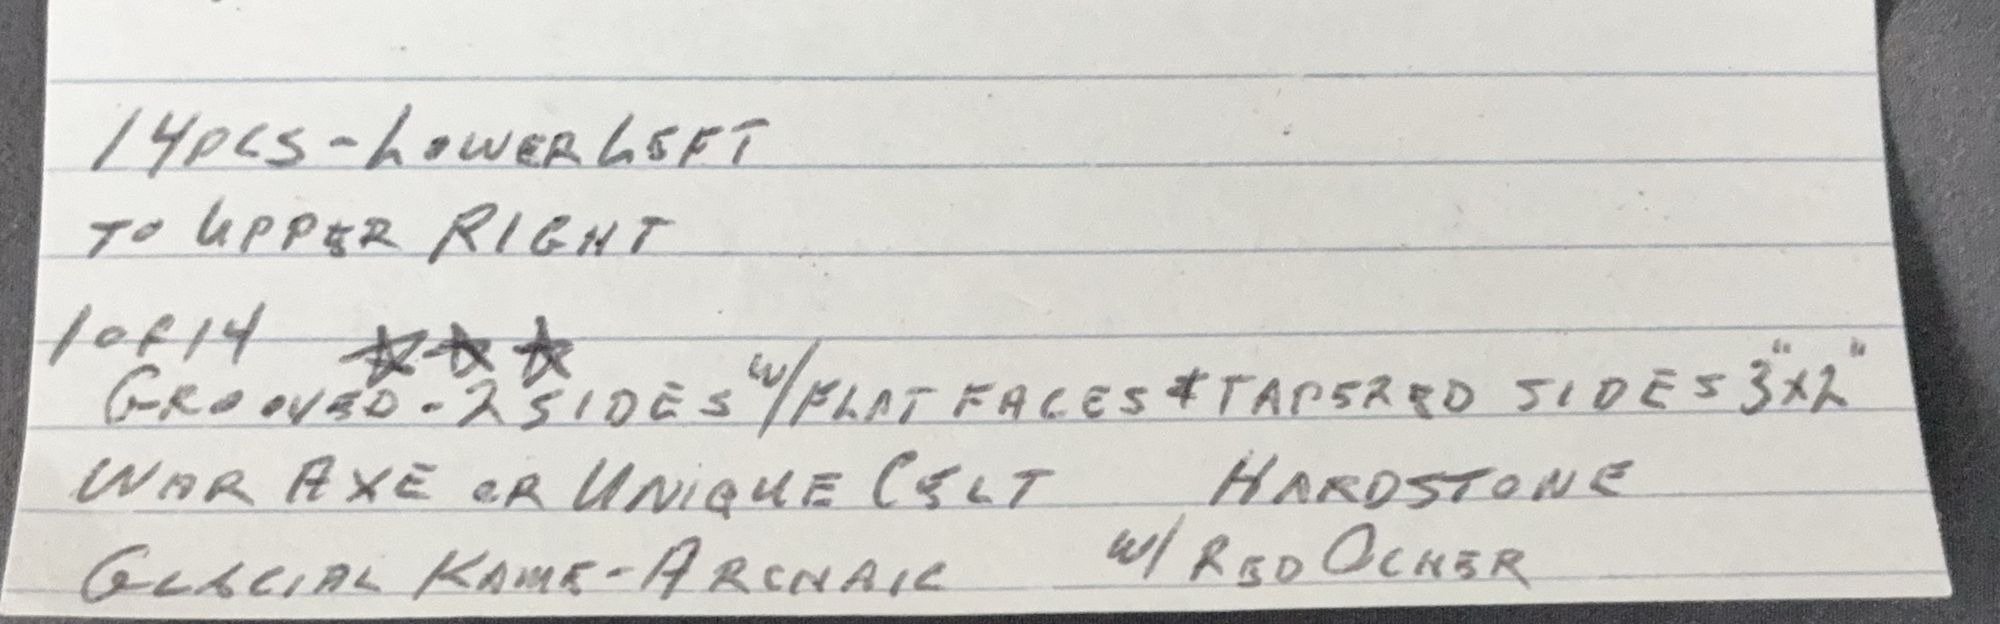 14PCS - LOWER LEFT
TO UPPER RIGHT
1 OF 14 ☆☆☆
GROOVED - 2 SIDES w/FLAT FACES & TAPERED SIDES 3"x2"
WAR AXE OR UNIQUE CELT HARDSTONE
GLACIAL KAME - ARCHAIC w/ RED OCHER